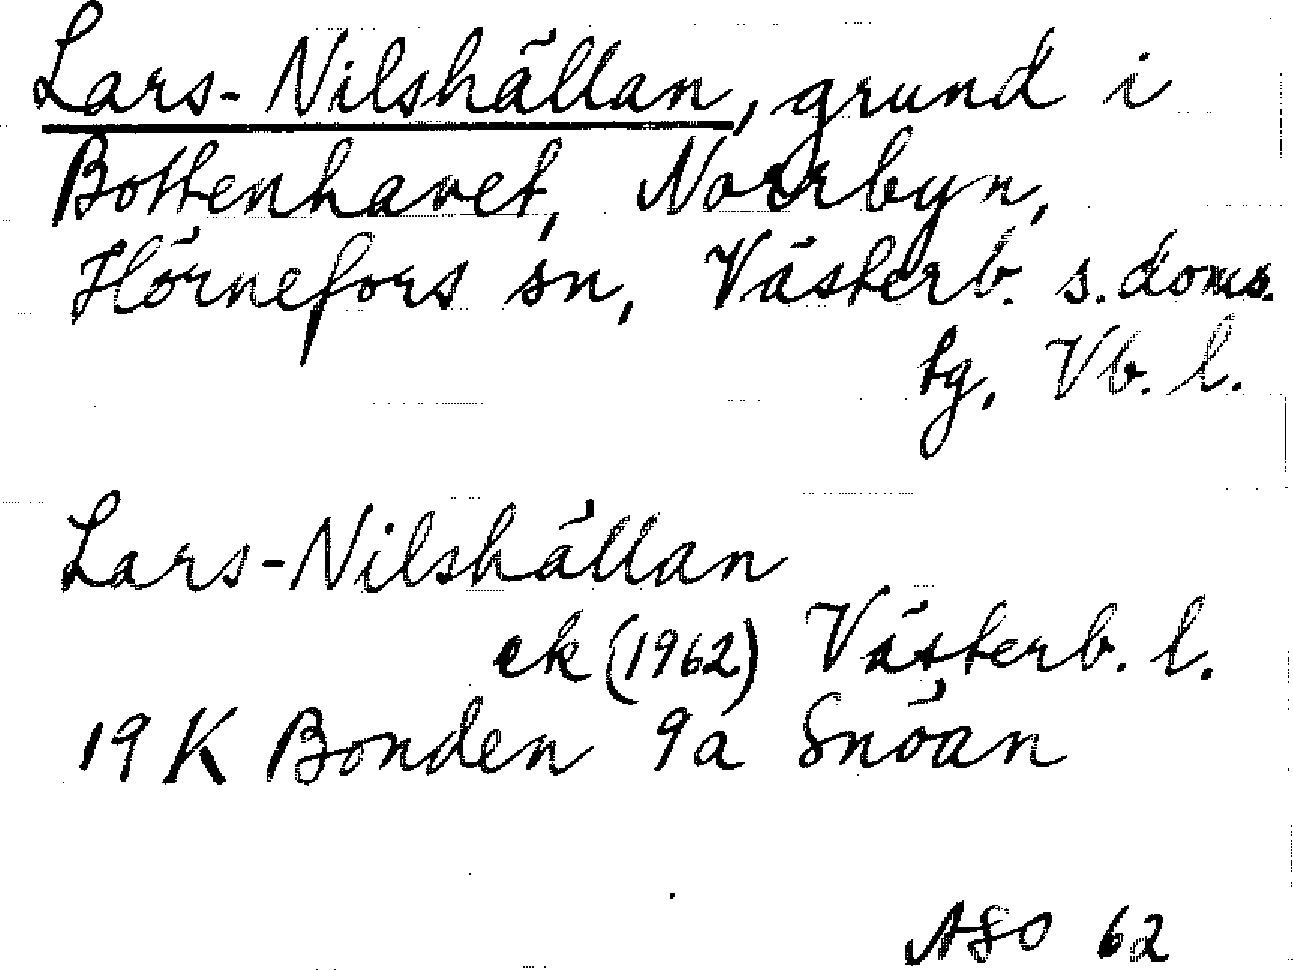 Lars-Nilshällan, grund i
Bottenhavet, Norrbyn,
Hörnefors sn, Västerb. s. doms.
tg, Vb. l.
Lars-Nilshällan
ek (1962) Västerb. l.
19 K Bonden 9a Snöan
ASO 62